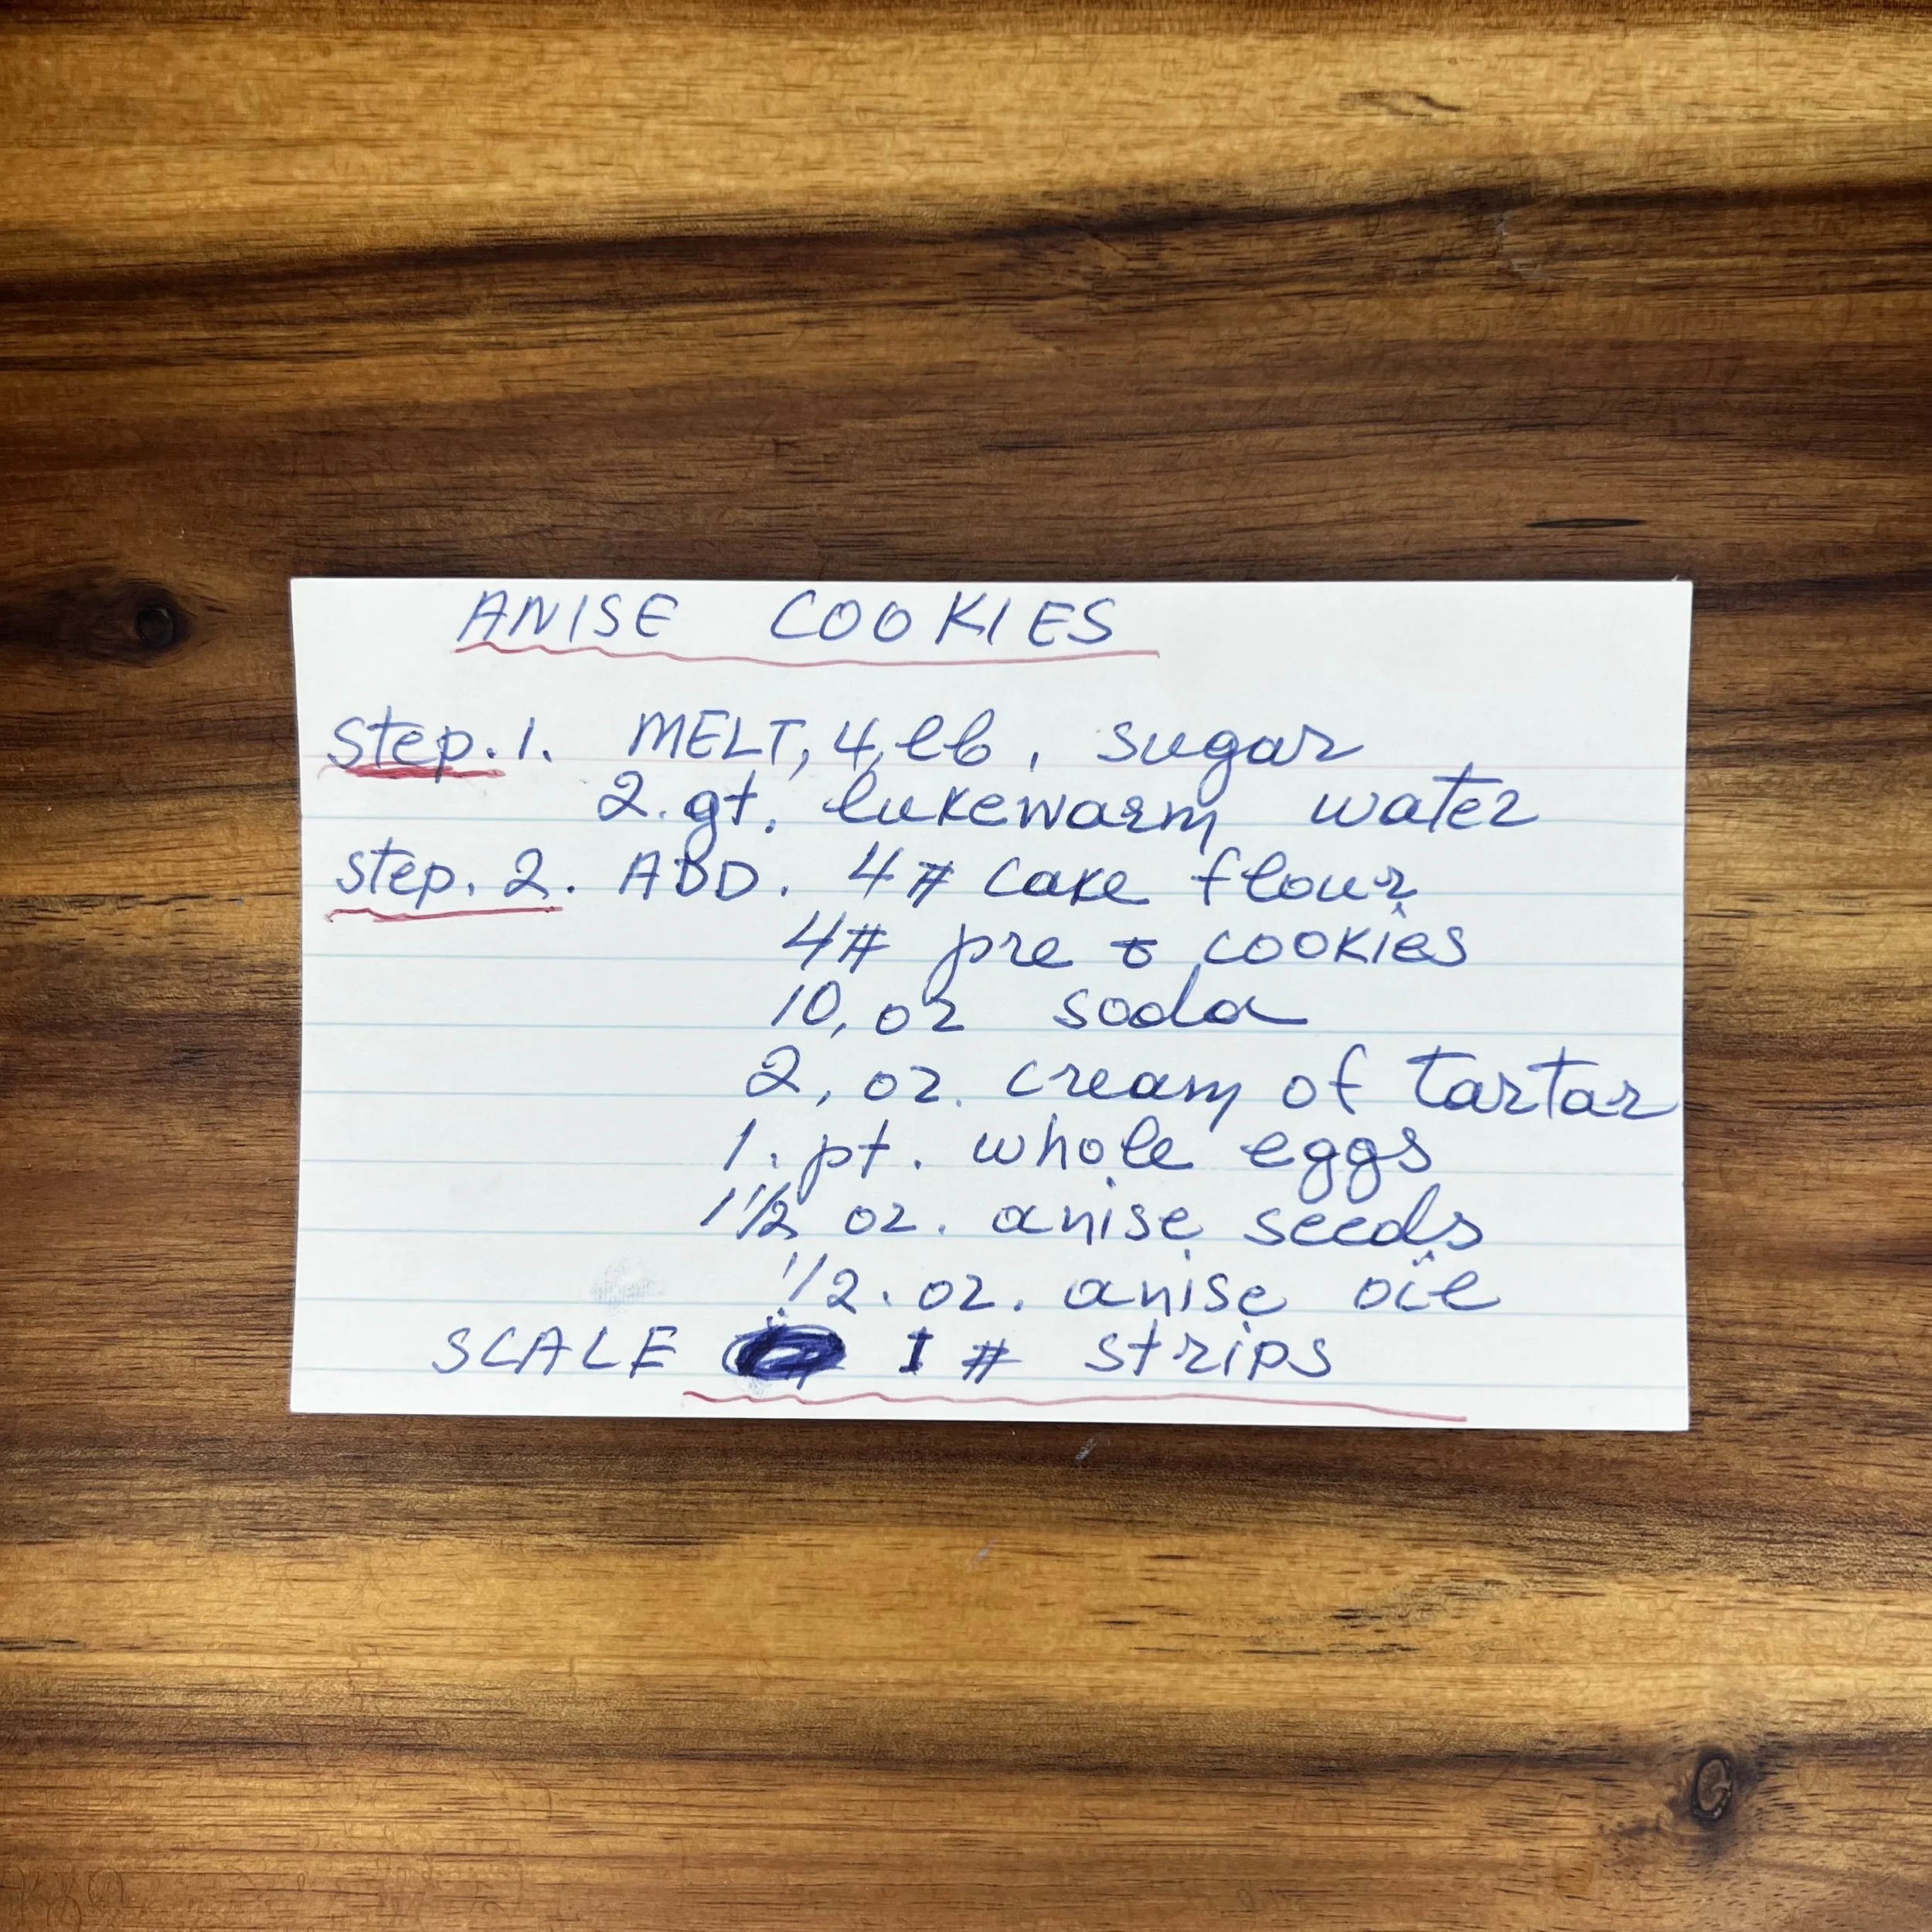 ANISE COOKIES
step. 1. MELT, 4, lb, sugar
2. qt. lukewarm water
step. 2. ADD. 4# cake flour
4# pre cookies
10, oz soda
2, oz. cream of tartar
1. pt. whole eggs
1 1/2 oz. anise seeds
1/2. oz. anise oil
SCALE 1 # strips